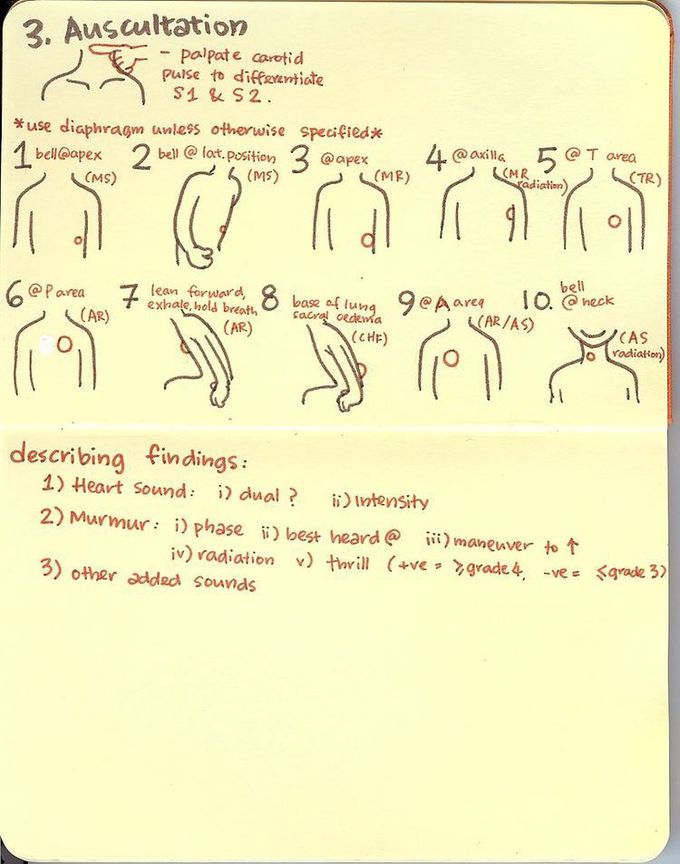 3. Auscultation
- palpate carotid
pulse to differentiate
S1 & S2.
*use diaphragm unless otherwise specified*
1 bell@apex
(MS)
2 bell @ lat. position
(MS)
3 @apex
(MR)
4 @axilla
(MR
radiation)
5 @ T area
(TR)
6 @ P area
(AR)
7 lean forward,
exhale, hold breath
(AR)
8 base of lung
sacral oedema
(CHF)
9 @ A area
(AR/AS)
10. bell
@ neck
(AS
radiation)
describing findings:
1) Heart sound: i) dual? ii) intensity
2) Murmur: i) phase ii) best heard @ iii) maneuver to ↑
iv) radiation v) thrill (+ve = ≥grade 4, -ve = ≤grade 3)
3) other added sounds